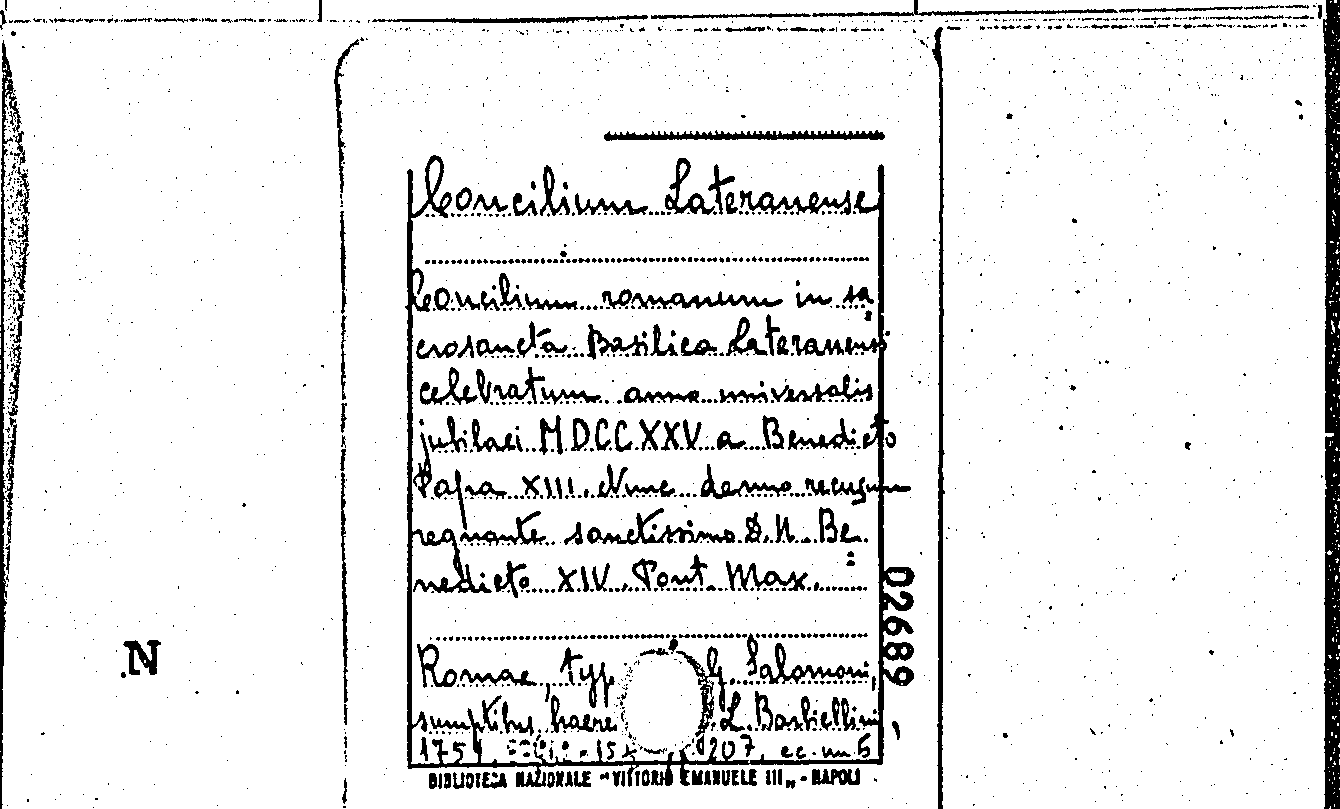 Concilium Lateranense
Concilium romanum in sa
crosancta Basilica Lateranensi
celebratum anno universalis
jubilaei MDCCXXV a Benedicto
Papa XIII. Nunc denuo recusum
regnante sanctissimo D. N. Be=
nedicto XIV. Pont. Max.
Romae, typ. G. Salomoni,
sumptibus haere L. Barbiellini,
1751. 207, cc. nn 6
BIBLIOTECA NAZIONALE "VITTORIO EMANUELE III„ - NAPOLI
02689
N